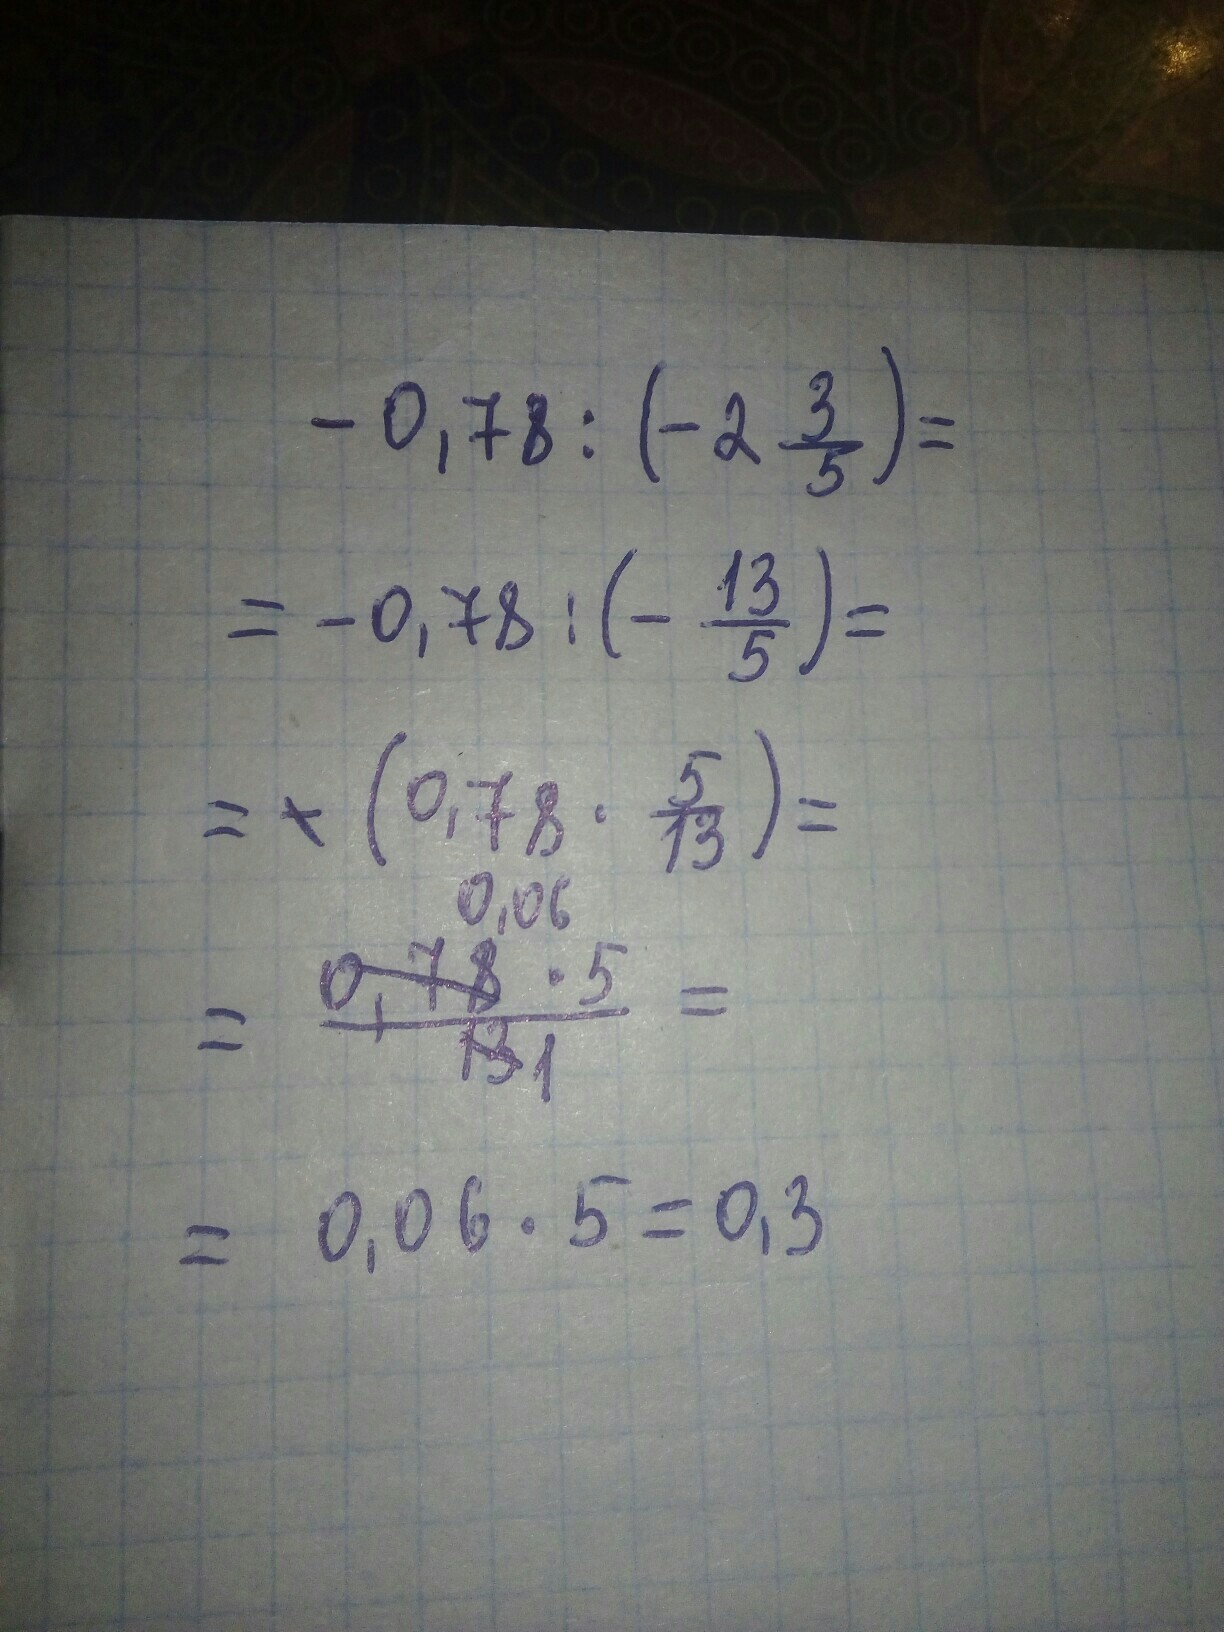 -0,78:(-2 3/5)=
= -0,78:(- 13/5)=
= + (0,78 · 5/13)=
0,06
= 0,78 · 5 / 13 1 =
= 0,06 · 5 = 0,3